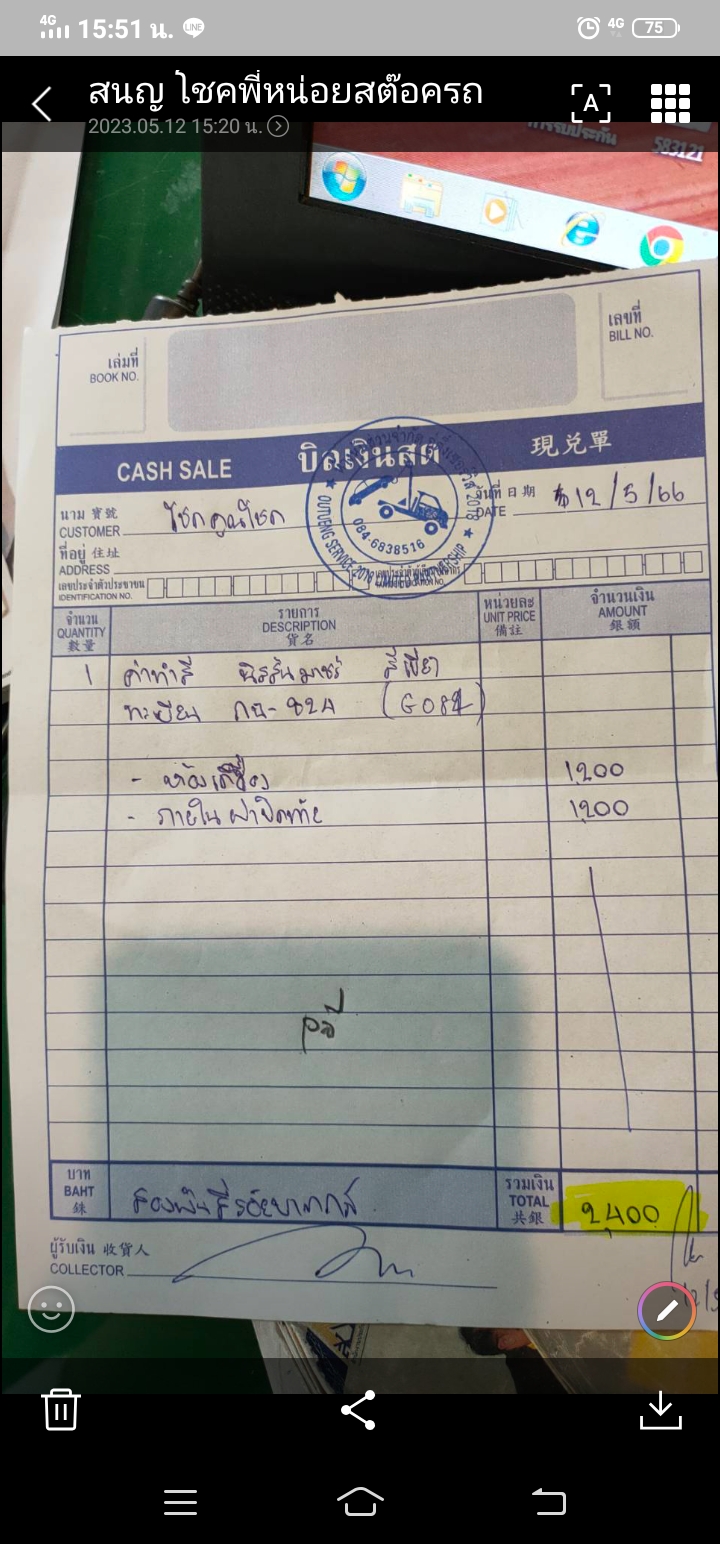 4G 15:51 น. LINE 4G 75
สนญ โชคพี่หน่อยสต๊อครถ
A
2023.05.12 15:20 น.
การรับประกัน 583121
เล่มที่
BOOK NO.
เลขที่
BILL NO.
CASH SALE บิลเงินสด 現兑單
นาม 寶號
CUSTOMER โชคคูณโชค
วันที่ 日期
DATE 12/5/66
ที่อยู่ 住址
ADDRESS
เลขประจำตัวประชาชน
IDENTIFICATION NO.
OUIVIENG SERVICE 2018 LIMITED PARTNERSHIP
084-6838516
จำนวน
QUANTITY
數量
รายการ
DESCRIPTION
貨名
หน่วยละ
UNIT PRICE
備註
จำนวนเงิน
AMOUNT
銀額
1 ค่าทำสี นิสสันมาร์ช
ทะเบียน
- ห้องเครื่อง 1,200
- ภายใน ฝาปิดท้าย 1,200
บาท
BAHT
銖
สองพันสี่ร้อยบาทถ้วน
รวมเงิน
TOTAL
共銀
2,400
ผู้รับเงิน 收貨人
COLLECTOR